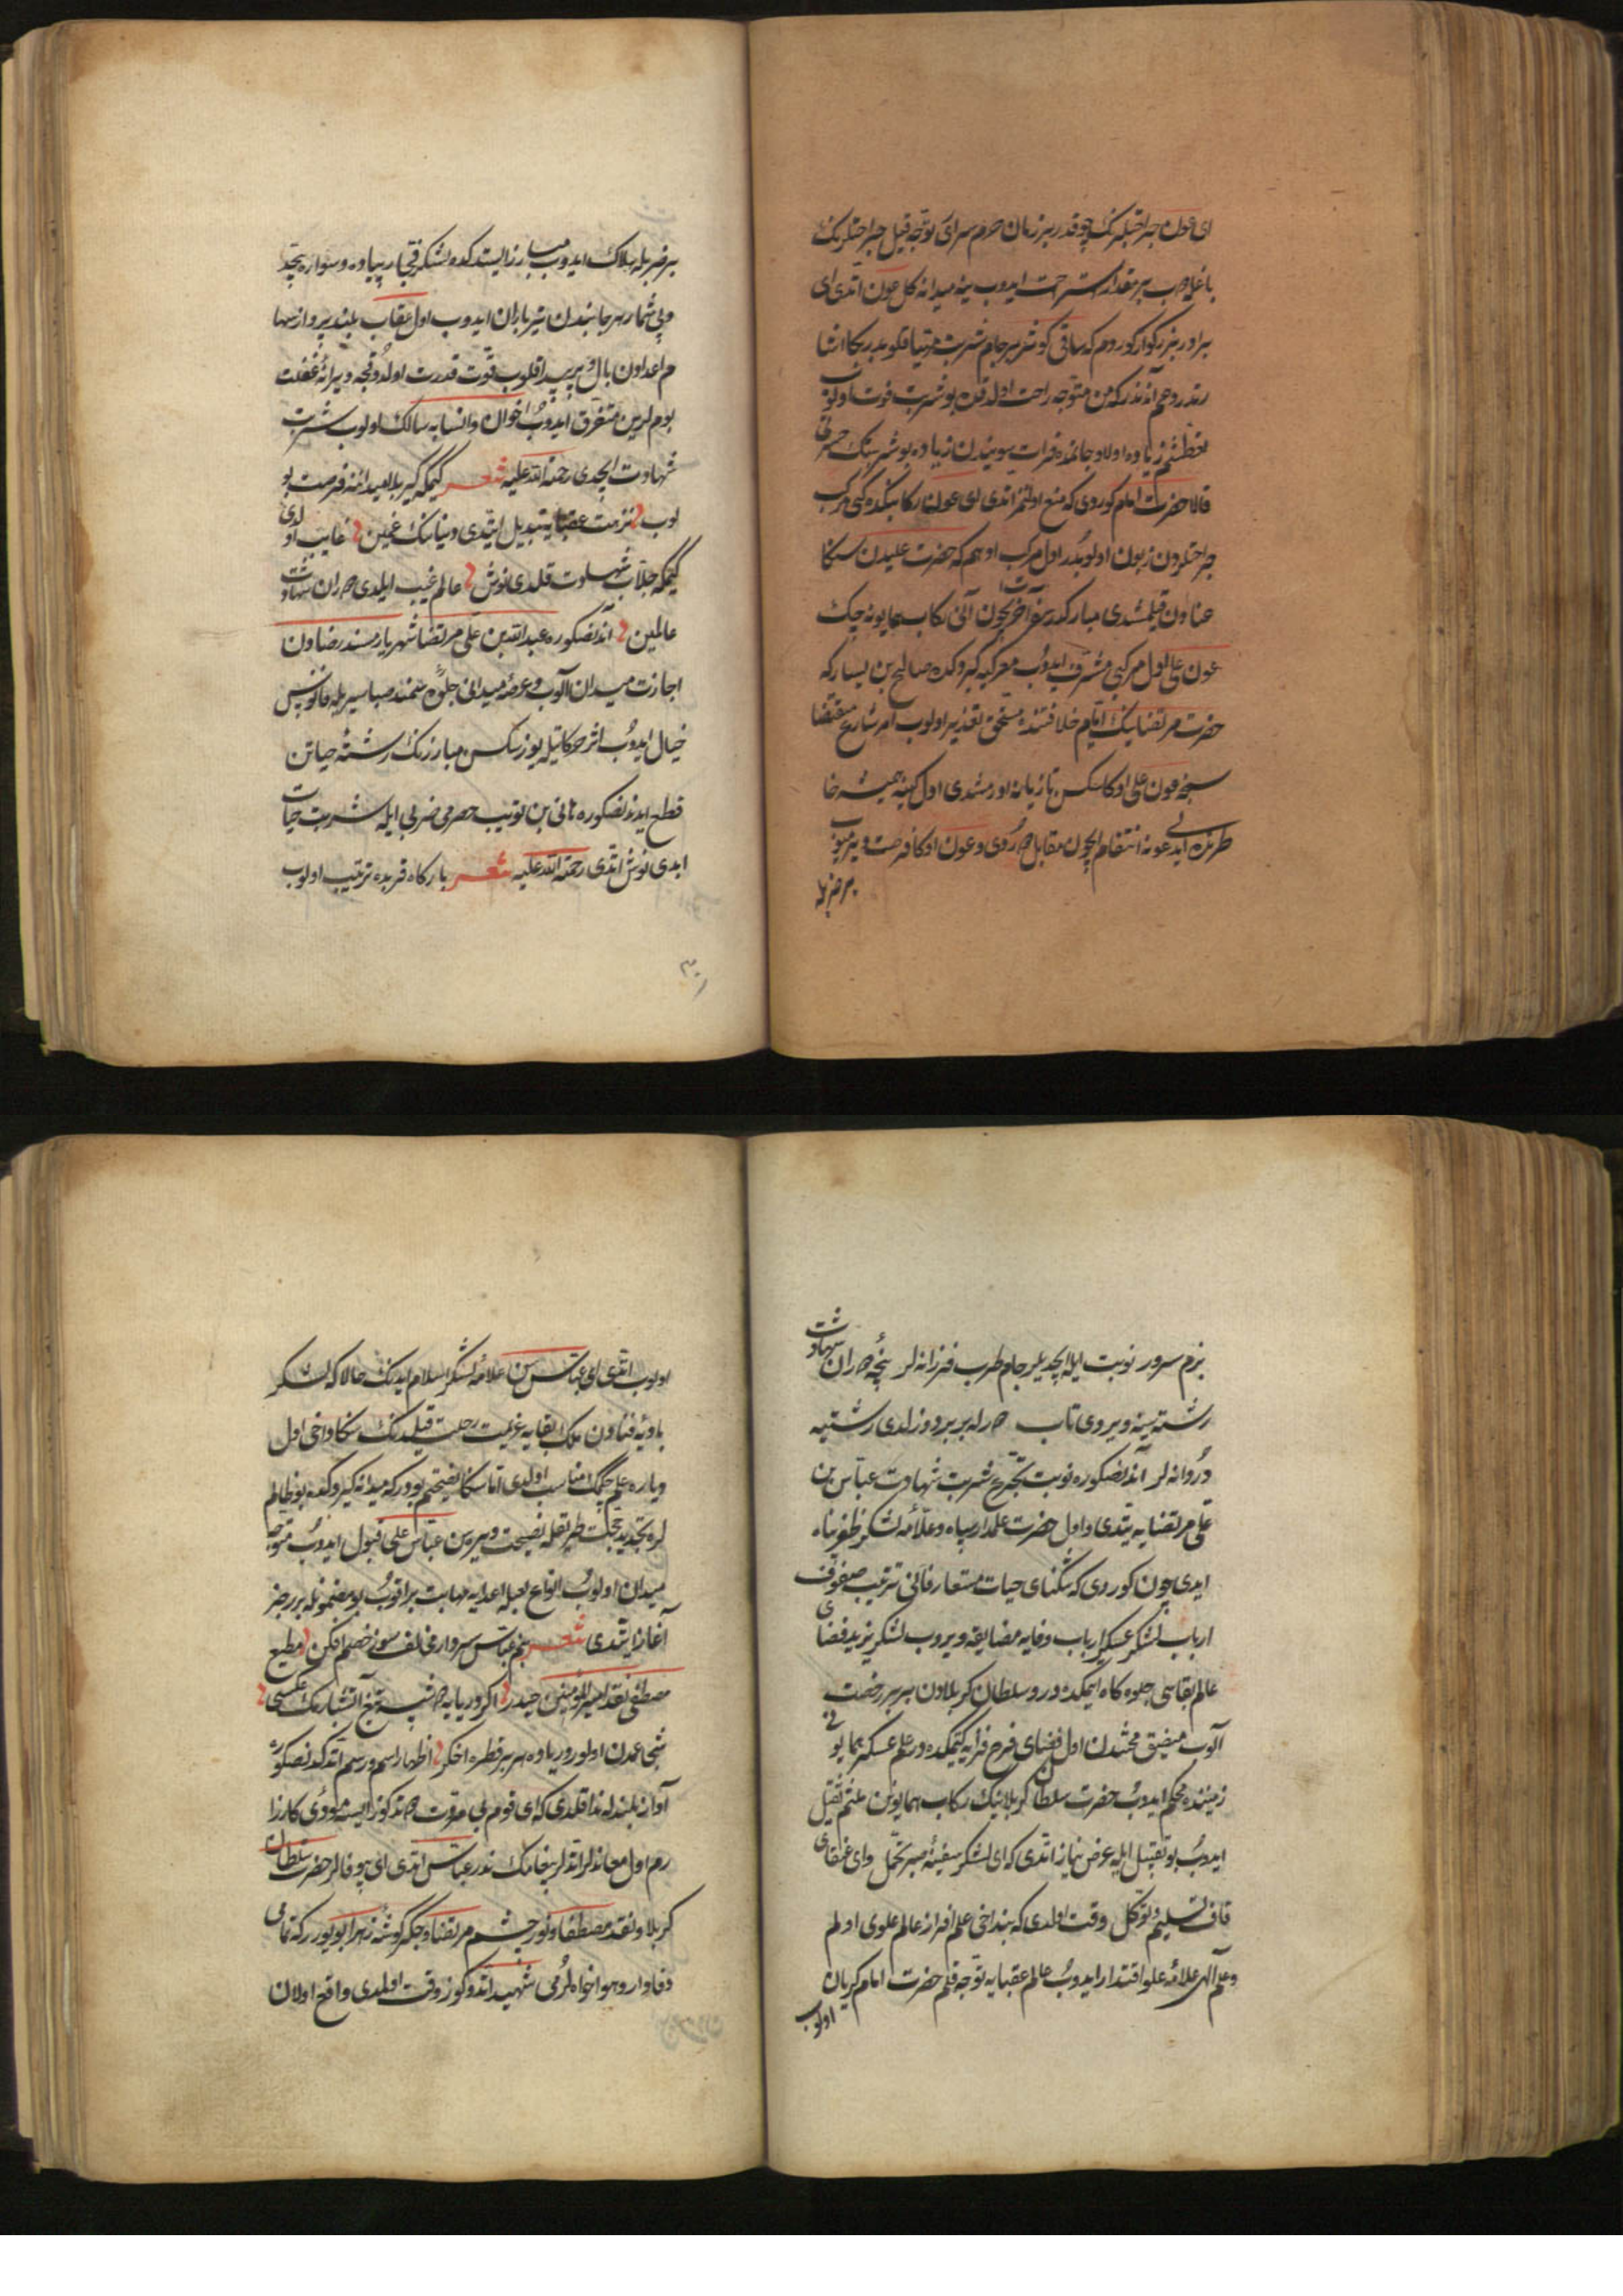 ای عون جراحتلرنك چوقدر بر زمان حرم سرای توجه قیل جراحتلرنك
باغلاوب بر مقدار استراحت ایدوب ینه میدانه كل عون اتدی ای
برادر بزركوار كوردم كه ساقی كوثر بر جام شربت مهیا قلوبدر بكا اشا
رتدر روحم آندندر كه من متوجه راحت اولدقدن بو شربت فوت اولوب
عطشم زیاده اولا و جانمده فرات سویندن زیاده بو شربتك حسرتی
قالا حضرت امام كوردی كه منع اولنمز اتدی ای عون ركابنكده كی مركب
جراحتدن زبون اولوبدر اول مركب ادهم كه حضرت علیدن سكا
عنادن قیلمشدی مباركدر سفر آخرت ایچون آنی ركاب همایونه چك
عون علی اول مركبی مشرف ایدوب معركیه كیردكده صالح بن یساركه
حضرت مرتضانیك ایام خلافتنده مستحق تعذیر اولوب امر شارع مقتضا
سنجه عون علی اوكا سكسن تازیانه اورمشدی اول كینه همیشه خا
طرنده ایدی عونه انتقام ایچون مقابل طوردی و عون اوكا فرصت ویرمیوب
بر ضربله
بر ضربله هلاك ایدوب مبارز ایستدكده لشكر فجار پیاده و سواره نجد
و بی شمار هر جانبدن تیرباران ایدوب اول عقاب بلند پرواز سها
م اعدادن بال و پر پیدا قلوب قوت قدرت اولدوقجه ویرانه غفلت
بوملرین متفرق ایدوب اخوان و انسابه سالك اولوب شربت
شهادت ایچدی رحمة الله علیه شعر كیمكه كربلا میداننه فرصت بو
لوب نزهت عقبایه تبدیل ایتدی دنیانك غمین غایب اولدی
كیمكه جلاب شهادت قلدی نوش عالم غیب ایلدی حیران شهادت
عالمین آندنصكوره عبدالله بن علی مرتضا شهریار مسند رضادن
اجازت میدان آلوب و عرصه میدانی جلوه سمند صبا سیریله فانوس
خیال ایدوب اثر حركاتیله یوز سكسن مبارزنك رشته حیاتن
قطع ایدندنصكوره هانی بن ثویب حضرمی ضربی ایله شربت حیات
ابدی نوش اتدی رحمة الله علیه شعر باركاه قربده ترتیب اولوب
٣٠١
بزم سرور نوبت ایله ایچدیلر جام طرب فرزانه لر پنچه حیران شهادت
رشته سینه ویردی تاب حیرله بر بر دوزلدی رشتیه
دردانه لر آندنصكوره نوبت تجرع شربت شهادت عباس بن
علی مرتضایه یتدی و اول حضرت علمدار سپاه و علامه لشكر ظفرپناه
ایدی چون كوردی كه تنكنای حیات مستعار فانی ترتیب صفوف
ارباب لشكر عسكر ارباب وفایه مضایقه ویروب لشكر یزید فضای
عالم بقاسی جلوه كاه ایمكده در و سلطان كربلادن بر بر رخصت
آلوب مضیق محنتدن اول فضای فرح فزایه كتمكده در علم عسكر همایونی
زمینده محكم ایدوب حضرت سلطان كربلانیك ركاب همایونن عتبه تقبیل
ایدوب بو تقبیل ایله عرض نیاز اتدی كه ای لشكر سفینه صبر تحمل وای عنقای
قاف تسلیم و توكل وقت اولدی كه بنداخی علم افراز عالم علوی اولم
و علم آلهی علامه علو اقتدار ایدوب عالم عقبایه توجه قلم حضرت امام كریان
اولوب
اولوب اتدی ای عباس سن علامه لشكر اسلام ایدنك حالا كه لشكر
بادیه فنادن ملك بقایه عزیمت رحلت قیلدنك سكا داخی اول
دیاره علم چكمك مناسب اولدی اما سكا نصیحتم بودر كه میدانه كیردكده بو ظالم
لره تجدید حجت طریقله نصیحت ویره سن عباس علی قبول ایدوب متوجه
میدان اولوب انواع لعبله اعدایه مهابت براقوب بو مضمونله بر رجز
آغاز ایتدی شعر بنم عباس سردار مخالف سوز خصم افكن مطیع
مصطفی نقد امیرالمؤمنین حیدر اكر دریایه دوشسه تیغ آتشبارمك عكسی
شجاعمدن اولور دریاده هر بر قطره اخكر اظهار اسم و رسم اتدكدنصكوره
آواز بلندله ندا قلدی كه ای قوم بی مروت عمر تدكوز ایسه مؤدی كارزا
رم اول معاندلر اتدلر پیغامك ندر عباس اتدی ای بیوفالر حضرت سلطان
كربلا و نقد مصطفا و نور چشم مرتضا و جكر كوشه زهرا بویورر كه تمامی
وفادار و هواخواهلرمی شهید اتدوكوز وقت اولدی واقع اولان